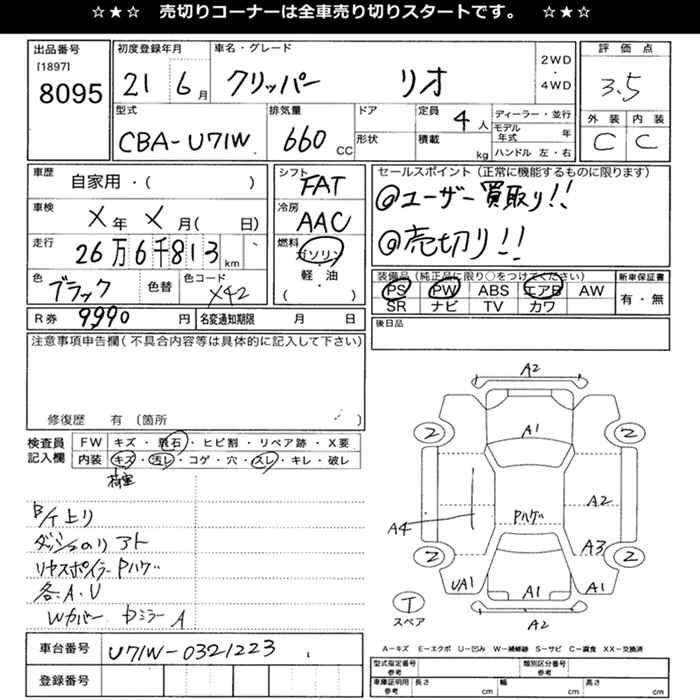 ☆★☆ 売切りコーナーは全車売り切りスタートです。 ☆★☆
出品番号 初度登録年月 車名・グレード 評価点
[1897] 8095 21 6月 クリッパー リオ 2WD・4WD 3.5
型式 排気量 ドア 定員 4人 ディーラー・並行 外装 内装
CBA-U71W 660cc 形状 積載 kg モデル年式 年 C C
ハンドル 左・右
車歴 自家用・( ) シフト FAT セールスポイント(正常に機能するものに限ります)
車検 X年X月( 日) 冷房 AAC @ユーザー買取り!!
走行 26万6千813km 燃料 ガソリン @売切り!!
軽・油
( )
色 ブラック 色替 色コード X42 装備品(純正品に限り○をつけてください) 新車保証書
PS PW ABS エアB AW 有・無
SR ナビ TV カワ
R券 9990円 名変通知期限 月 日 後日品
注意事項申告欄(不具合内容等は具体的に記入して下さい)
修復歴 有〔箇所 〕
検査員記入欄 FW キズ・飛石・ヒビ割・リペア跡・X要
内装 キズ・汚レ・コゲ・穴・スレ・キレ・破レ
ダッシュのリアト
リヤスポイラーPハゲ
各A.U
Wカバー ドミラーA
A2
A1
2 2
A2
A4 Pハゲ
A3
2 2
UA1 A1 A1
T
スペア A2
A-キズ E-エクボ U-凹み W-補修跡 S-サビ C-腐食 XX-交換済
車台番号 U71W-0321223
登録番号
型式指定番号 参考 類別区分番号 参考
車庫証明用 参考 長さ cm 幅 cm 高さ cm